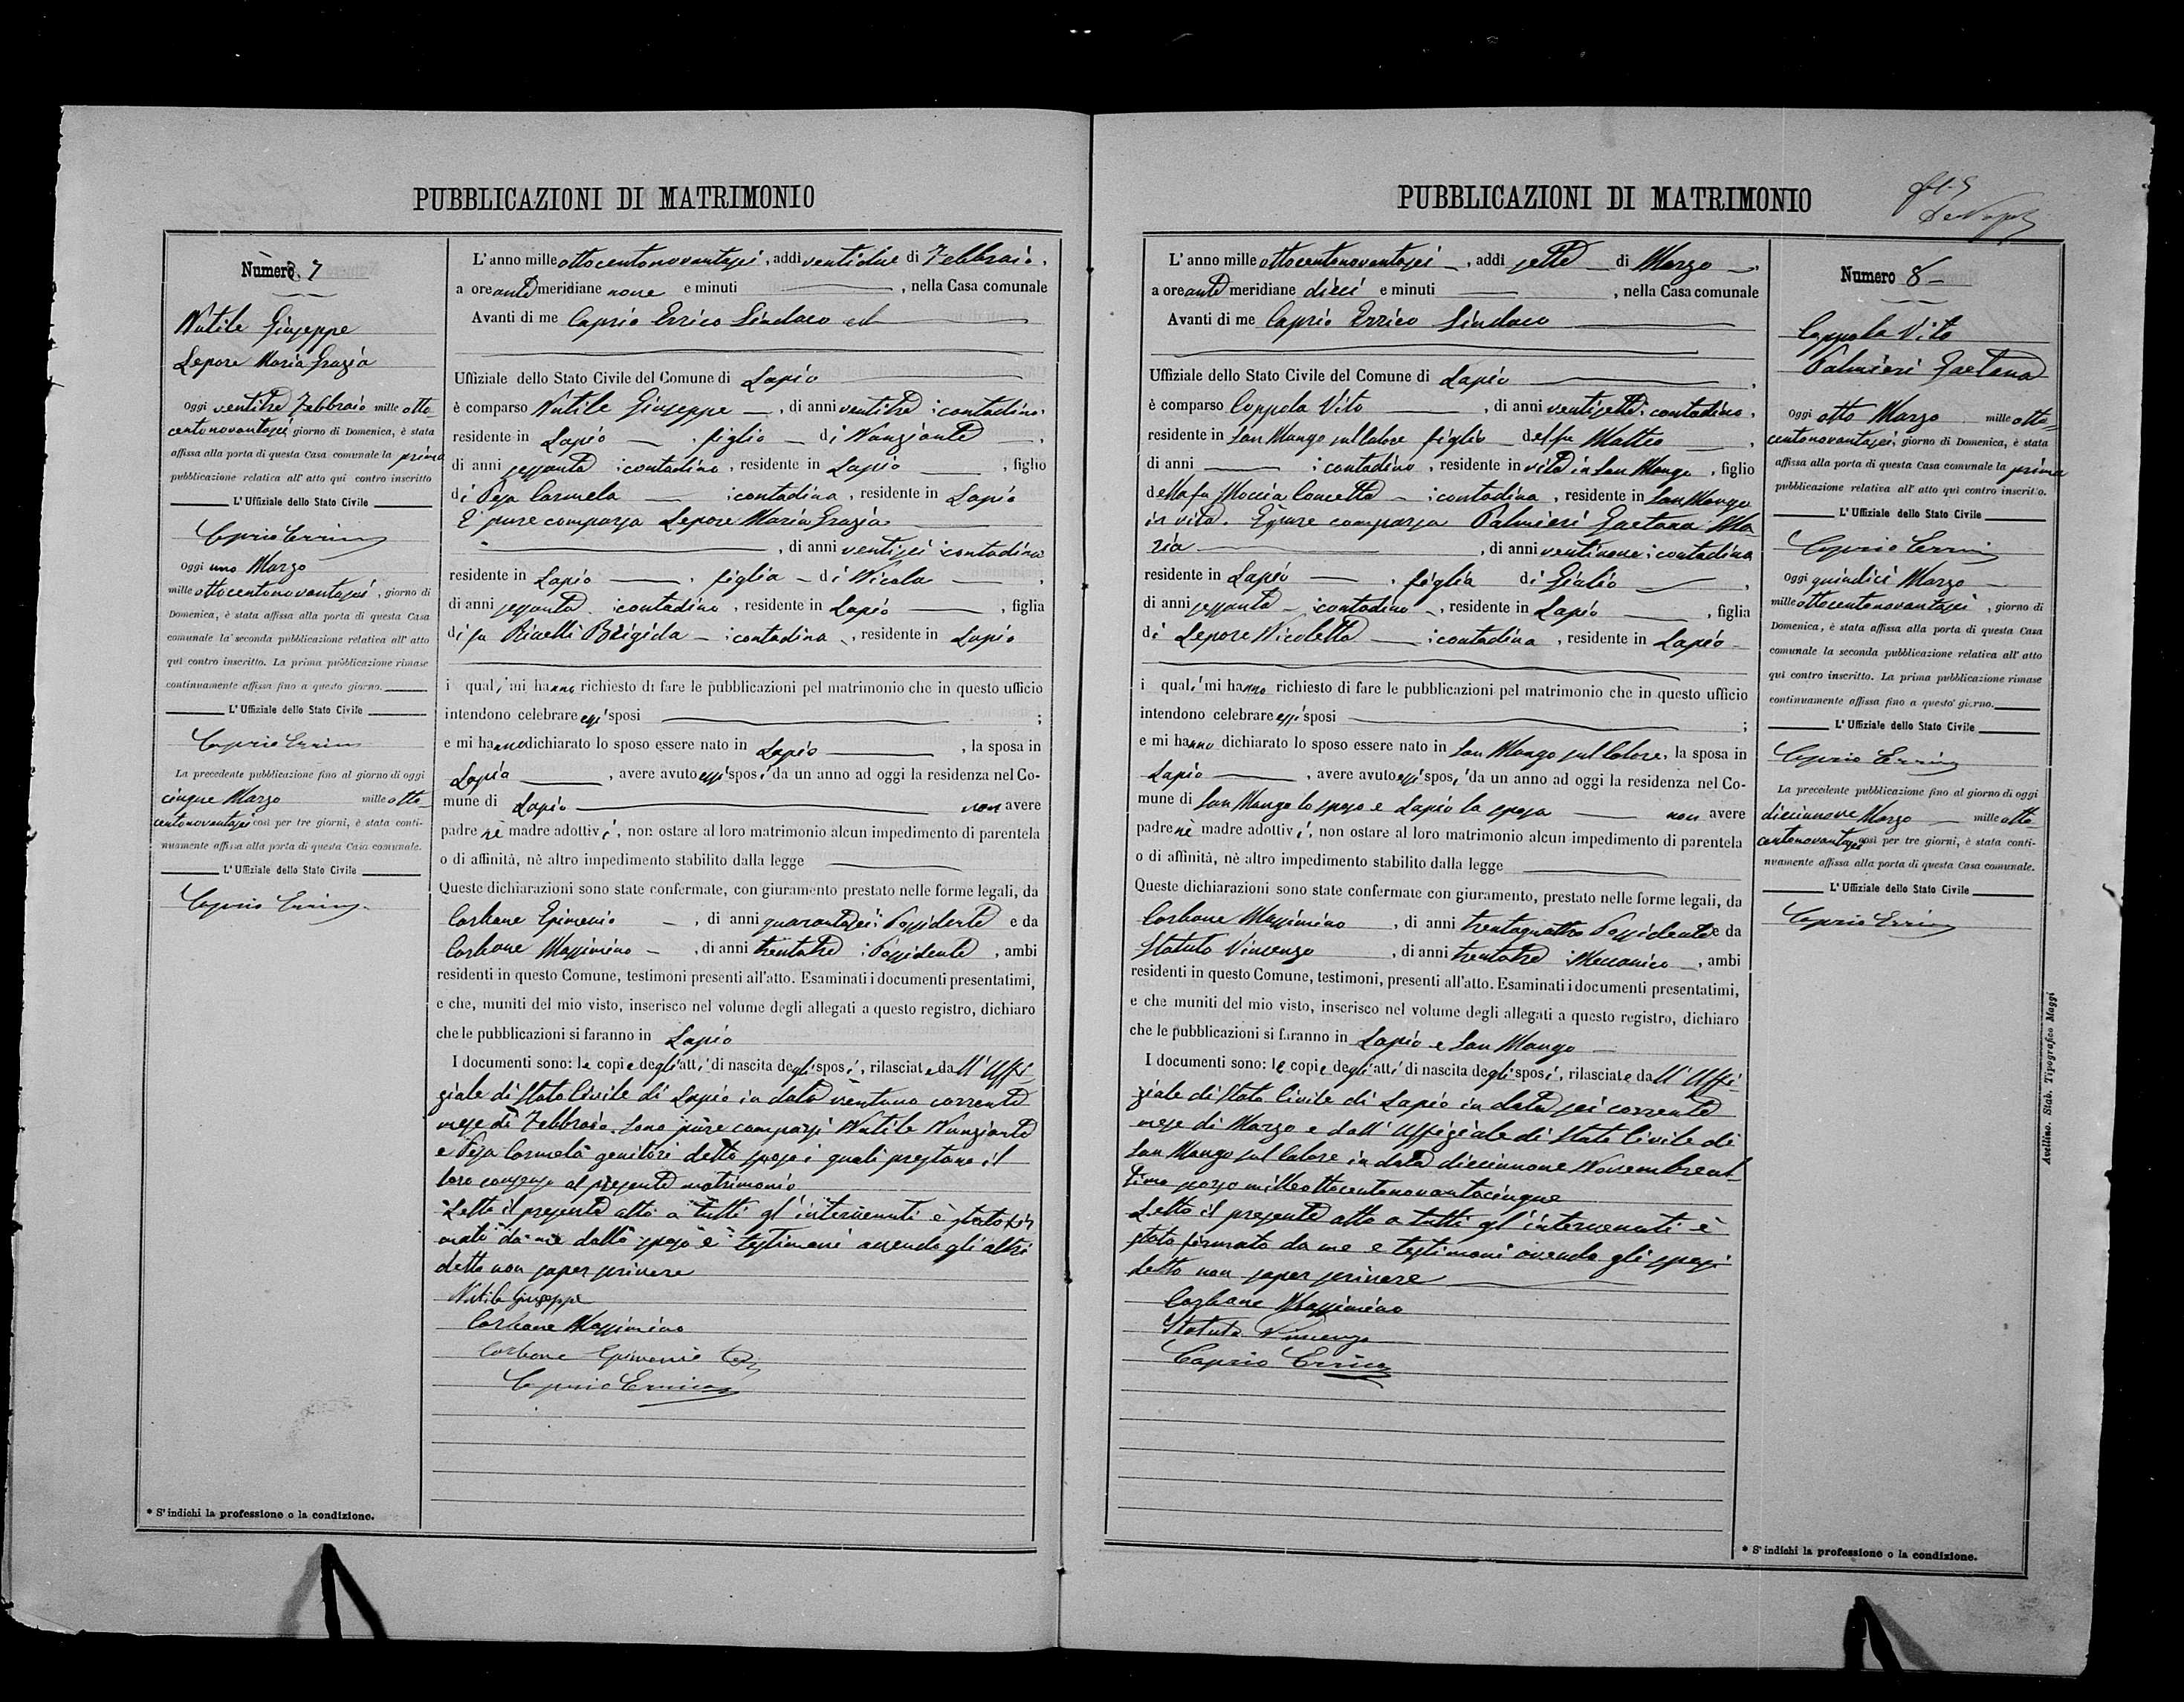 PUBBLICAZIONI DI MATRIMONIO
Numero 7
Nutile Giuseppe
Lepore Maria Grazia
Oggi ventitre Febbraio mille otto-
centonovantasei giorno di Domenica, è stata
affissa alla porta di questa Casa comunale la prima
pubblicazione relativa all' atto qui contro inscritto
L' Uffiziale dello Stato Civile
Caprio Errico
Oggi uno Marzo
mille ottocentonovantasei, giorno di
Domenica, è stata affissa alla porta di questa Casa
comunale la seconda pubblicazione relativa all' atto
qui contro inscritto. La prima pubblicazione rimase
continuamente affissa fino a questo giorno.
L' Uffiziale dello Stato Civile
Caprio Errico
La precedente pubblicazione fino al giorno di oggi
cinque Marzo mille otto-
centonovantasei così per tre giorni, è stata conti-
nuamente affissa alla porta di questa Casa comunale.
L' Uffiziale dello Stato Civile
Caprio Errico
* S' indichi la professione o la condizione.
L' anno mille ottocentonovantasei, addi ventidue di Febbraio,
a ore ante meridiane nove e minuti , nella Casa comunale
Avanti di me Caprio Errico Sindaco ed
Uffiziale dello Stato Civile del Comune di Lapio
è comparso Nutile Giuseppe , di anni ventitre : contadino,
residente in Lapio , figlio di Nunziante ,
di anni sessanta : contadino, residente in Lapio , figlio
di Pesa Carmela : contadina, residente in Lapio
E' pure comparsa Lepore Maria Grazia
, di anni ventisei : contadina
residente in Lapio , figlia di Nicola ,
di anni sessanta : contadino, residente in Lapio , figlia
di fu Rinelli Brigida : contadina, residente in Lapio
i quali mi hanno richiesto di fare le pubblicazioni pel matrimonio che in questo ufficio
intendono celebrare essi sposi ;
e mi hanno dichiarato lo sposo essere nato in Lapio , la sposa in
Lapio , avere avuto essi sposi da un anno ad oggi la residenza nel Co-
mune di Lapio non avere
padre nè madre adottivi, non ostare al loro matrimonio alcun impedimento di parentela
o di affinità, nè altro impedimento stabilito dalla legge
Queste dichiarazioni sono state confermate, con giuramento prestato nelle forme legali, da
Carbone Epimenio , di anni quarantasei : Possidente e da
Carbone Massimino , di anni trentatre : Possidente , ambi
residenti in questo Comune, testimoni presenti all'atto. Esaminati i documenti presentatimi,
e che, muniti del mio visto, inserisco nel volume degli allegati a questo registro, dichiaro
che le pubblicazioni si faranno in Lapio
I documenti sono: le copie degli atti di nascita degli sposi, rilasciate dall' Uffi-
ziale di Stato Civile di Lapio in data ventuno corrente
mese di Febbraio. Sono pure comparsi Nutile Nunziante
e Pesa Carmela genitori dello sposo i quali prestano il
loro consenso al presente matrimonio
Letto il presente atto a tutti gl' intervenuti è stato fir
mato da me dallo sposo e testimoni avendo gli altri
detto non saper scrivere
Nutile Giuseppe
Carbone Massimino
Carbone Epimenio
Caprio Errico
PUBBLICAZIONI DI MATRIMONIO
L' anno mille ottocentonovantasei , addi sette di Marzo ,
a ore ante meridiane dieci e minuti , nella Casa comunale
Avanti di me Caprio Errico Sindaco
Uffiziale dello Stato Civile del Comune di Lapio ,
è comparso Coppola Vito , di anni ventisette : contadino,
residente in San Mango sul Calore figlio del fu Matteo ,
di anni : contadino, residente in vita in San Mango , figlio
della fu Moccia Concetta : contadina , residente in San Mango
in vita. E' pure comparsa Palmieri Gaetana Ma
ria , di anni ventinove : contadina
residente in Lapio , figlia di Giulio ,
di anni sessanta : contadino , residente in Lapio , figlia
di Lepore Nicoletta : contadina , residente in Lapio
i quali mi hanno richiesto di fare le pubblicazioni pel matrimonio che in questo ufficio
intendono celebrare essi sposi ;
e mi hanno dichiarato lo sposo essere nato in San Mango sul Calore, la sposa in
Lapio , avere avuto essi sposi da un anno ad oggi la residenza nel Co-
mune di San Mango lo sposo e Lapio la sposa non avere
padre nè madre adottivi, non ostare al loro matrimonio alcun impedimento di parentela
o di affinità, nè altro impedimento stabilito dalla legge
Queste dichiarazioni sono state confermate con giuramento, prestato nelle forme legali, da
Carbone Massimino , di anni trentaquattro Possidente e da
Statuto Vincenzo , di anni trentatre : Meccanico , ambi
residenti in questo Comune, testimoni, presenti all'atto. Esaminati i documenti presentatimi,
e che muniti del mio visto, inserisco nel volume degli allegati a questo registro, dichiaro
che le pubblicazioni si faranno in Lapio e San Mango
I documenti sono: le copie degli atti di nascita degli sposi, rilasciate dall' Uffi-
ziale di Stato Civile di Lapio in data sei corrente
mese di Marzo e dall' Uffiziale di Stato Civile di
San Mango sul Calore in data diecinnove Novembre ul-
timo scorso milleottocentonovantacinque
Letto il presente atto a tutti gl' intervenuti è
stato firmato da me e testimoni avendo gli sposi
detto non saper scrivere
Carbone Massimino
Statuto Vincenzo
Caprio Errico
Numero 8
Coppola Vito
Palmieri Gaetana
Oggi otto Marzo mille otto-
centonovantasei, giorno di Domenica, è stata
affissa alla porta di questa Casa comunale la prima
pubblicazione relativa all' atto qui contro inscritto.
L' Uffiziale dello Stato Civile
Caprio Errico
Oggi quindici Marzo
mille ottocentonovantasei , giorno di
Domenica, è stata affissa alla porta di questa Casa
comunale la seconda pubblicazione relativa all' atto
qui contro inscritto. La prima pubblicazione rimase
continuamente affissa fino a questo giorno.
L' Uffiziale dello Stato Civile
Caprio Errico
La precedente pubblicazione fino al giorno di oggi
diecinnove Marzo mille otto-
centonovantasei così per tre giorni, è stata conti-
nuamente affissa alla porta di questa Casa comunale.
L' Uffiziale dello Stato Civile
Caprio Errico
Avellino. Stab. Tipografico Maggi
* S' indichi la professione o la condizione.